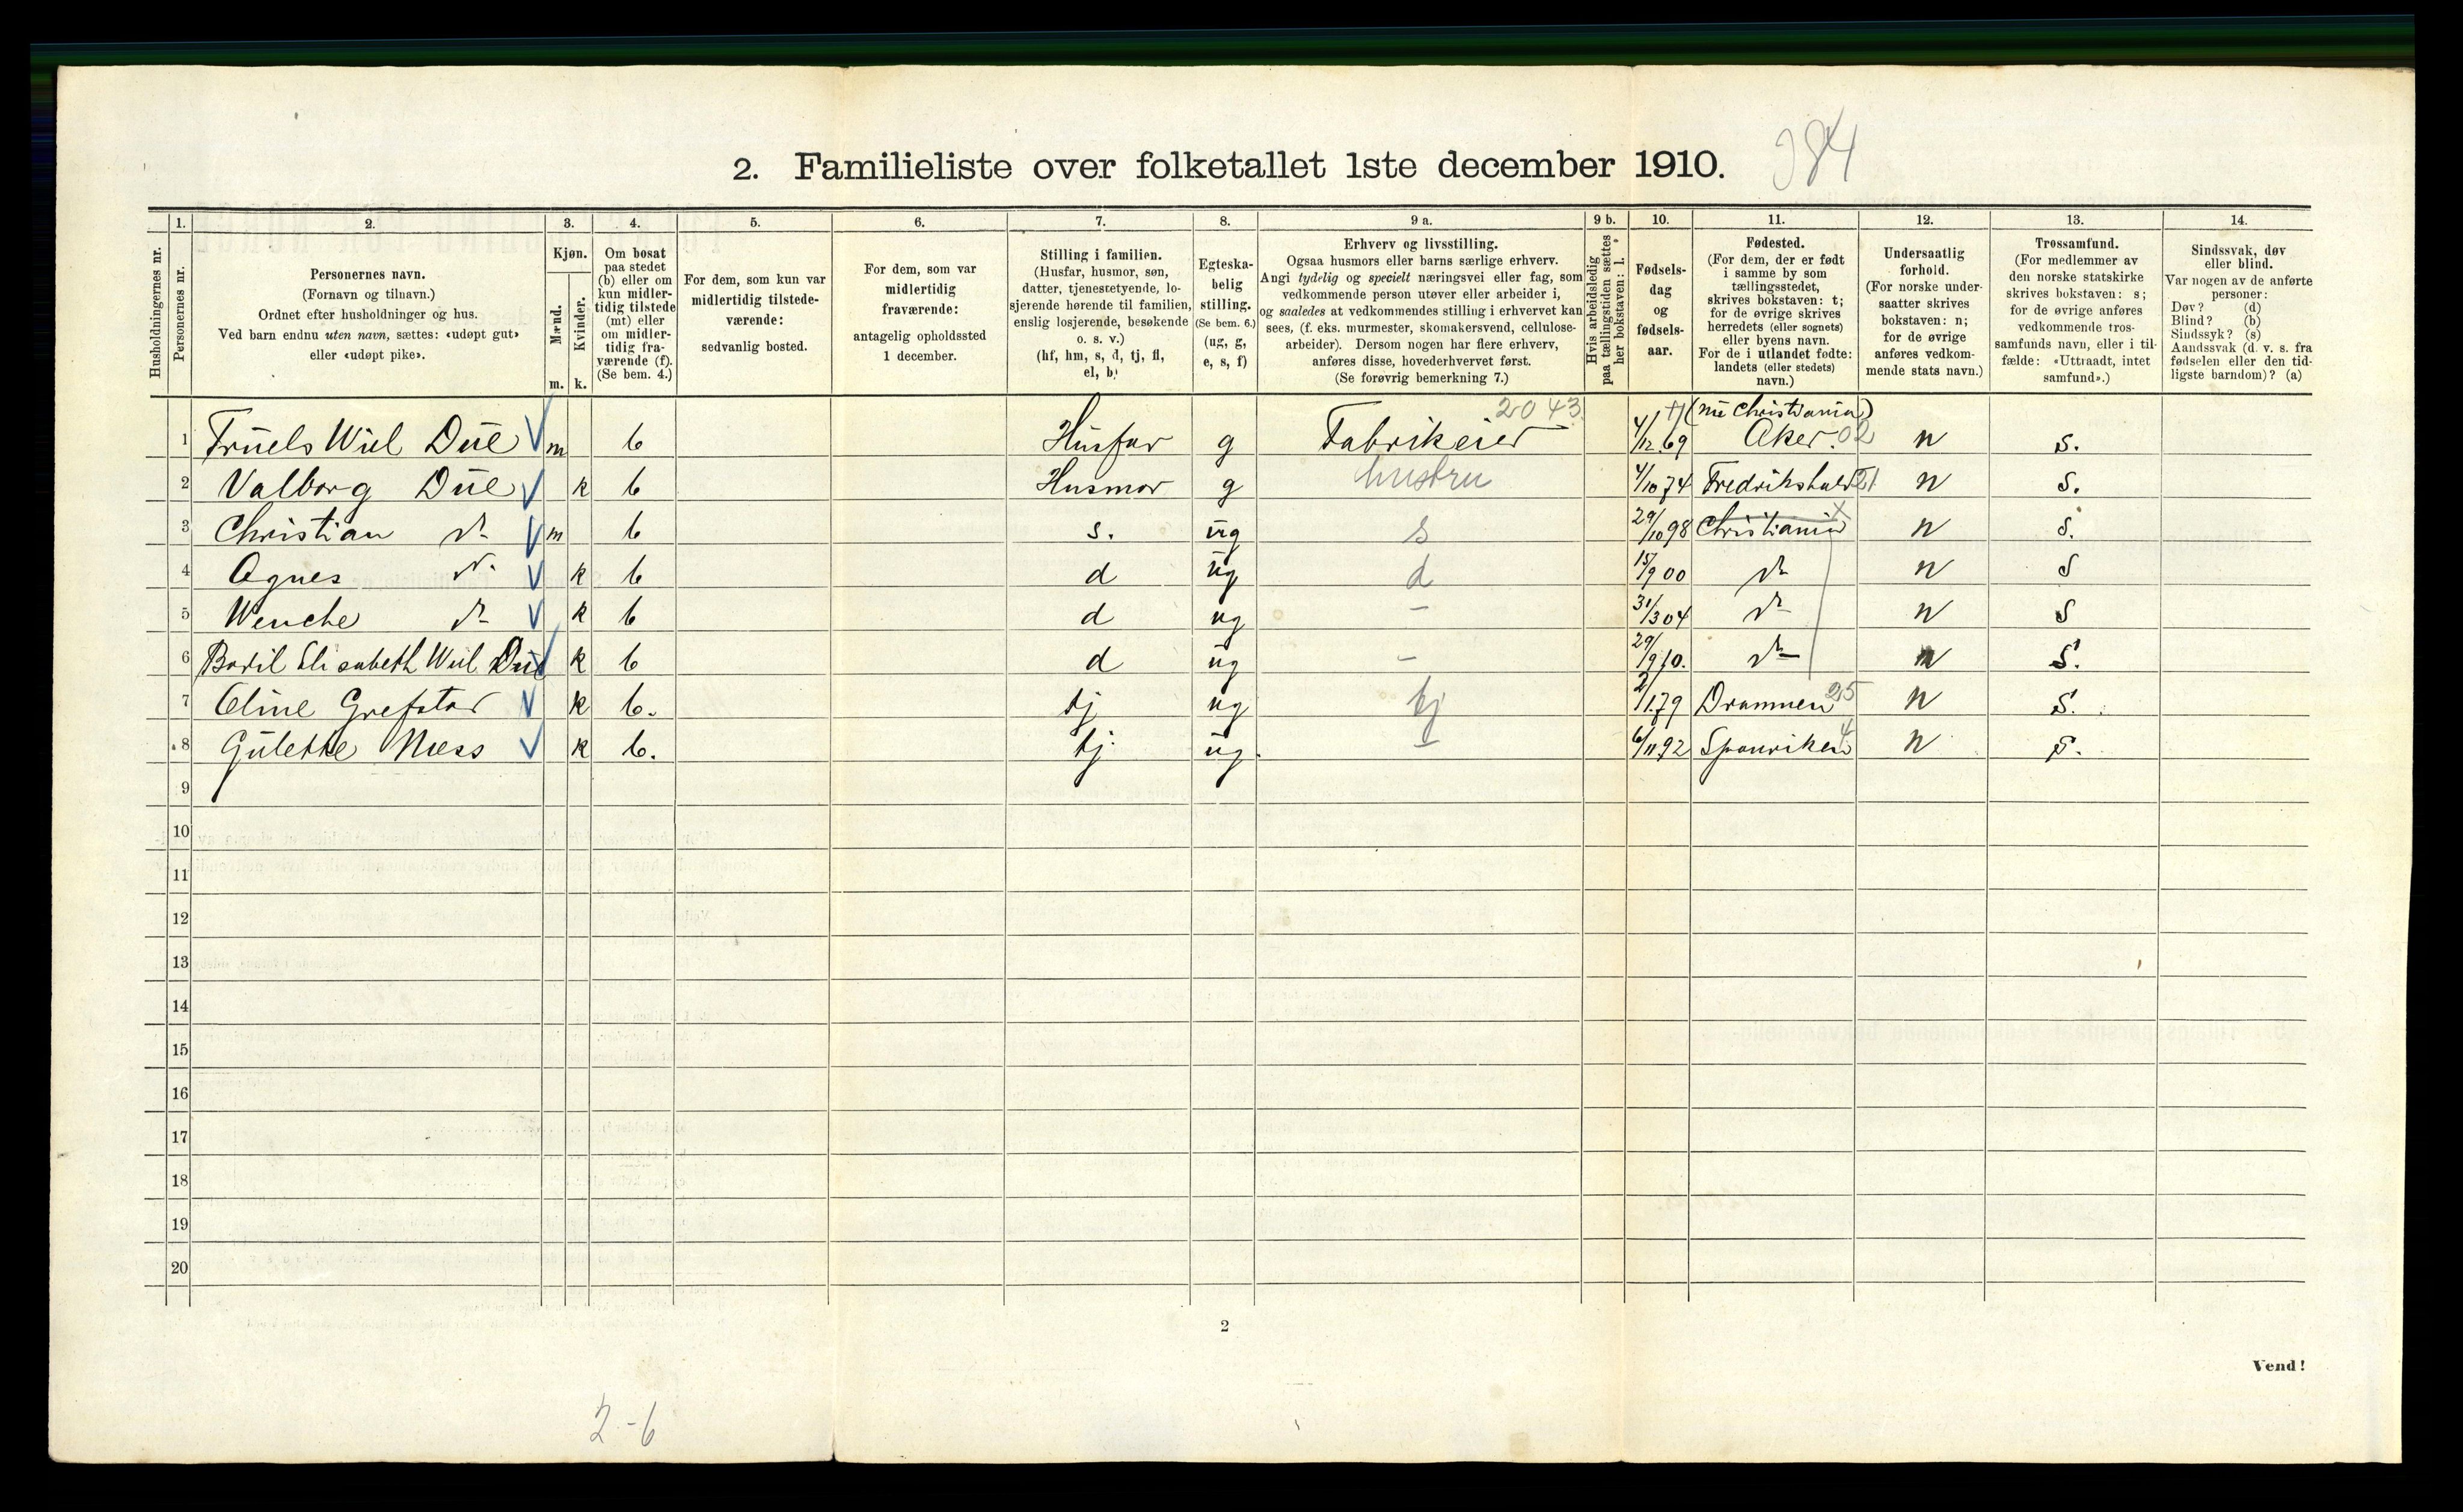 2. Familieliste over folketallet 1ste december 1910. 384
Husholdningernes nr.
1.
Personernes nr.
2.
Personernes navn.
(Fornavn og tilnavn.)
Ordnet efter husholdninger og hus.
Ved barn endnu uten navn, sættes: «udøpt gut»
eller «udøpt pike».
3.
Kjøn.
Mænd.
m.
Kvinder.
k.
4.
Om bosat
paa stedet
(b) eller om
kun midler-
tidig tilstede
(mt) eller
om midler-
tidig fra-
værende (f).
(Se bem. 4.)
5.
For dem, som kun var
midlertidig tilstede-
værende:
sedvanlig bosted.
6.
For dem, som var
midlertidig
fraværende:
antagelig opholdssted
1 december.
7.
Stilling i familien.
(Husfar, husmor, søn,
datter, tjenestetyende, lo-
sjerende hørende til familien,
enslig losjerende, besøkende
o. s. v.)
(hf, hm, s, d, tj, fl,
el, b)
8.
Egteska-
belig
stilling.
(Se bem. 6.)
(ug, g,
e, s, f)
9 a.
Erhverv og livsstilling.
Ogsaa husmors eller barns særlige erhverv.
Angi tydelig og specielt næringsvei eller fag, som
vedkommende person utøver eller arbeider i,
og saaledes at vedkommendes stilling i erhvervet kan
sees, (f. eks. murmester, skomakersvend, cellulose-
arbeider). Dersom nogen har flere erhverv,
anføres disse, hovederhvervet først.
(Se forøvrig bemerkning 7.)
9 b.
Hvis arbeidsledig
paa tællingstiden sættes
her bokstaven: l.
10.
Fødsels-
dag
og
fødsels-
aar.
11.
Fødested.
(For dem, der er født
i samme by som
tællingsstedet,
skrives bokstaven: t;
for de øvrige skrives
herredets (eller sognets)
eller byens navn.
For de i utlandet fødte:
landets (eller stedets)
navn.)
12.
Undersaatlig
forhold.
(For norske under-
saatter skrives
bokstaven: n;
for de øvrige
anføres vedkom-
mende stats navn.)
13.
Trossamfund.
(For medlemmer av
den norske statskirke
skrives bokstaven: s;
for de øvrige anføres
vedkommende tros-
samfunds navn, eller i til-
fælde: «Uttraadt, intet
samfund».)
14.
Sindssvak, døv
eller blind.
Var nogen av de anførte
personer:
Døv? (d)
Blind? (b)
Sindssyk? (s)
Aandssvak (d. v. s. fra
fødselen eller den tid-
ligste barndom)? (a)
2043 (nu Christiania)
1 Truels Wiel Due m b Husfar g Fabrikeier 4/12.69 Aker. 02 n s.
2 Valborg Due k b Husmor g hustru 4/10 74 Fredrikshald 21 n s.
3 Christian do m b s. ug s 29/10 98 Christiania n s.
4 Agnes do k b d ug d 15/9 00 do n s
5 Wenche do k b d ug – 31/3 04 do n s
6 Bodil Elisabeth Wiel Due k b d ug – 29/9 10. do n s.
7 Eline Grefstad k b. tj ug tj 2/1.79 Drammen 25 n s.
8 Gulette Næss k b. tj. ug. – 6/11 92 n s.
9
10
11
12
13
14
15
16
17
18
19
20
2
Vend!
2-6